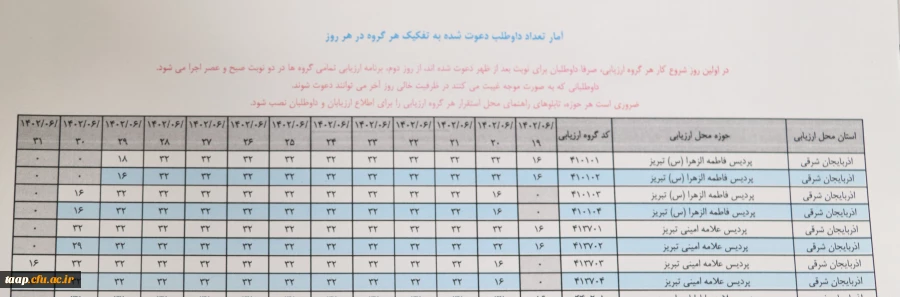 آمار تعداد داوطلب دعوت شده به تفکیک هر گروه در هر روز
در اولین روز شروع کار هر گروه ارزیابی، صرفا داوطلبان برای نوبت بعد از ظهر دعوت شده اند، از روز دوم، برنامه ارزیابی تمامی گروه ها در دو نوبت صبح و عصر اجرا می شود.
داوطلبانی که به صورت موجه غیبت می کنند در ظرفیت خالی روز آخر می توانند دعوت شوند.
ضروری است هر حوزه، تابلوهای راهنمای محل استقرار هر گروه ارزیابی را برای اطلاع ارزیابان و داوطلبان نصب شود.
استان محل ارزیابی حوزه محل ارزیابی کد گروه ارزیابی ۱۴۰۲/۰۶/۱۹ ۱۴۰۲/۰۶/۲۰ ۱۴۰۲/۰۶/۲۱ ۱۴۰۲/۰۶/۲۲ ۱۴۰۲/۰۶/۲۳ ۱۴۰۲/۰۶/۲۴ ۱۴۰۲/۰۶/۲۵ ۱۴۰۲/۰۶/۲۶ ۱۴۰۲/۰۶/۲۷ ۱۴۰۲/۰۶/۲۸ ۱۴۰۲/۰۶/۲۹ ۱۴۰۲/۰۶/۳۰ ۱۴۰۲/۰۶/۳۱
آذربایجان شرقی پردیس فاطمه الزهرا (س) تبریز ۴۱۰۱۰۱ ۱۶ ۳۲ ۳۲ ۳۲ ۳۲ ۳۲ ۳۲ ۳۲ ۳۲ ۳۲ ۱۸ ۰ ۰
آذربایجان شرقی پردیس فاطمه الزهرا (س) تبریز ۴۱۰۱۰۲ ۱۶ ۳۲ ۳۲ ۳۲ ۳۲ ۳۲ ۳۲ ۳۲ ۳۲ ۳۲ ۱۶ ۰ ۰
آذربایجان شرقی پردیس فاطمه الزهرا (س) تبریز ۴۱۰۱۰۳ ۰ ۱۶ ۳۲ ۳۲ ۳۲ ۳۲ ۳۲ ۳۲ ۳۲ ۳۲ ۳۲ ۱۶ ۰
آذربایجان شرقی پردیس فاطمه الزهرا (س) تبریز ۴۱۰۱۰۴ ۰ ۱۶ ۳۲ ۳۲ ۳۲ ۳۲ ۳۲ ۳۲ ۳۲ ۳۲ ۳۲ ۱۶ ۰
آذربایجان شرقی پردیس علامه امینی تبریز ۴۱۳۷۰۱ ۱۶ ۳۲ ۳۲ ۳۲ ۳۲ ۳۲ ۳۲ ۳۲ ۳۲ ۳۲ ۳۲ ۳۲ ۰
آذربایجان شرقی پردیس علامه امینی تبریز ۴۱۳۷۰۲ ۱۶ ۳۲ ۳۲ ۳۲ ۳۲ ۳۲ ۳۲ ۳۲ ۳۲ ۳۲ ۳۲ ۲۹ ۰
آذربایجان شرقی پردیس علامه امینی تبریز ۴۱۳۷۰۳ ۰ ۱۶ ۳۲ ۳۲ ۳۲ ۳۲ ۳۲ ۳۲ ۳۲ ۳۲ ۳۲ ۳۲ ۱۶
آذربایجان شرقی پردیس علامه امینی تبریز ۴۱۳۷۰۴ ۰ ۱۶ ۳۲ ۳۲ ۳۲ ۳۲ ۳۲ ۳۲ ۳۲ ۳۲ ۳۲ ۳۲
taap.cfu.ac.ir